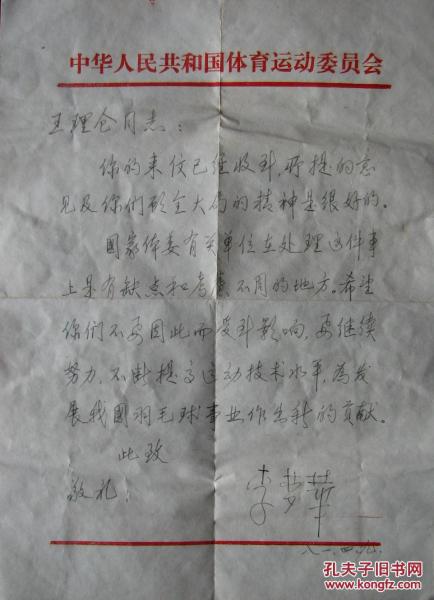 中华人民共和国体育运动委员会
王理仓同志：
你的来信已经收到，所提的意
见及你们顾全大局的精神是很好的。
国家体委有关单位在处理这件事
上是有缺点和考虑不周的地方。希望
你们不要因此而受到影响，要继续
努力，不断提高运动技术水平，为发
展我国羽毛球事业作出新的贡献。
此致
敬礼！
李梦华
八一.四.九.
孔夫子旧书网